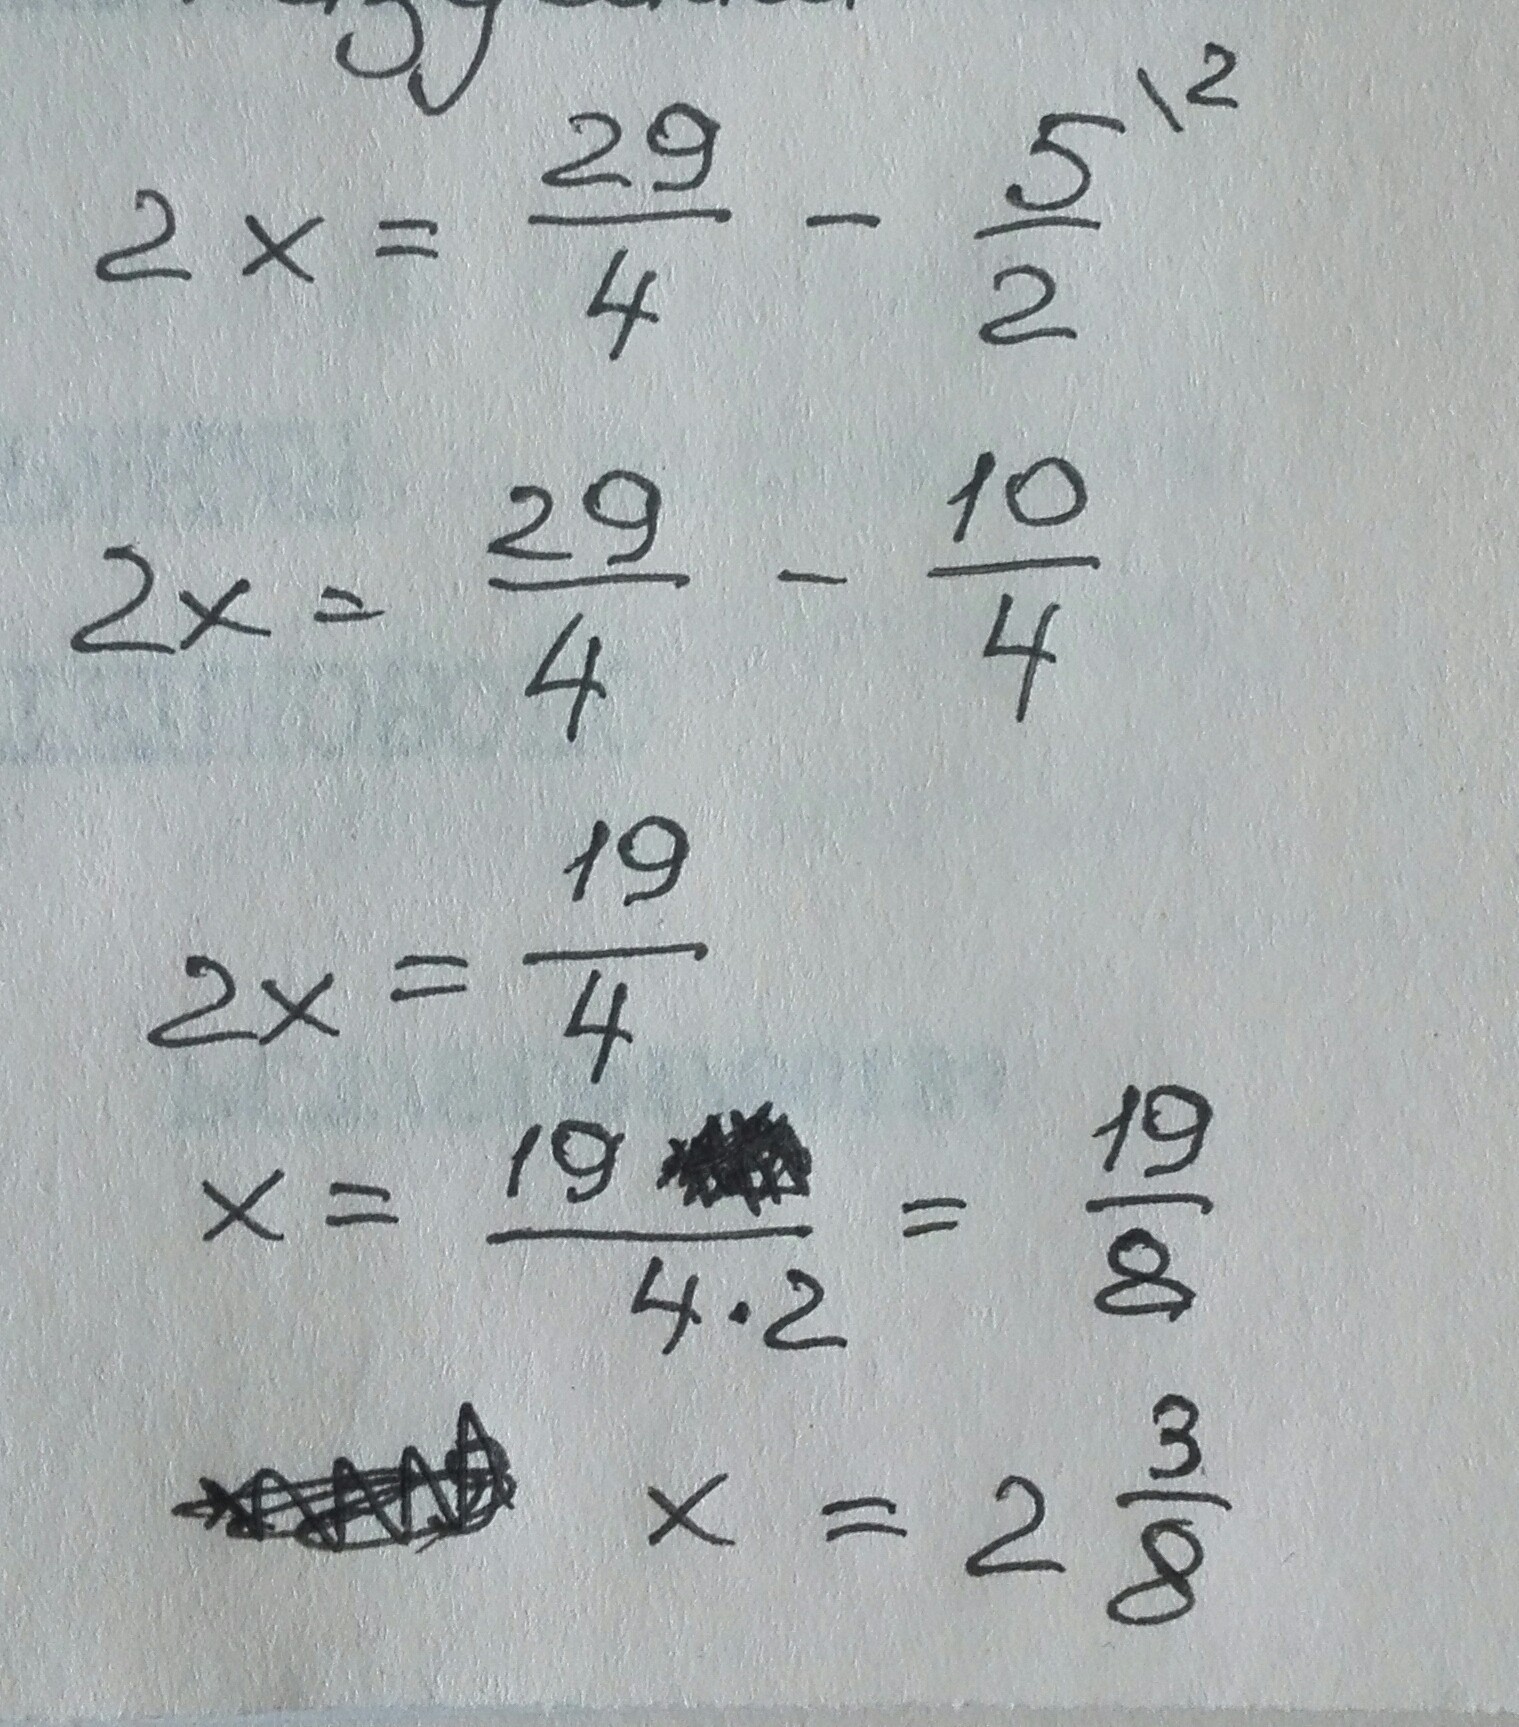 2x = 29/4 - 5\2/2
2x = 29/4 - 10/4
2x = 19/4
x = 19/4·2 = 19/8
x = 2 3/8